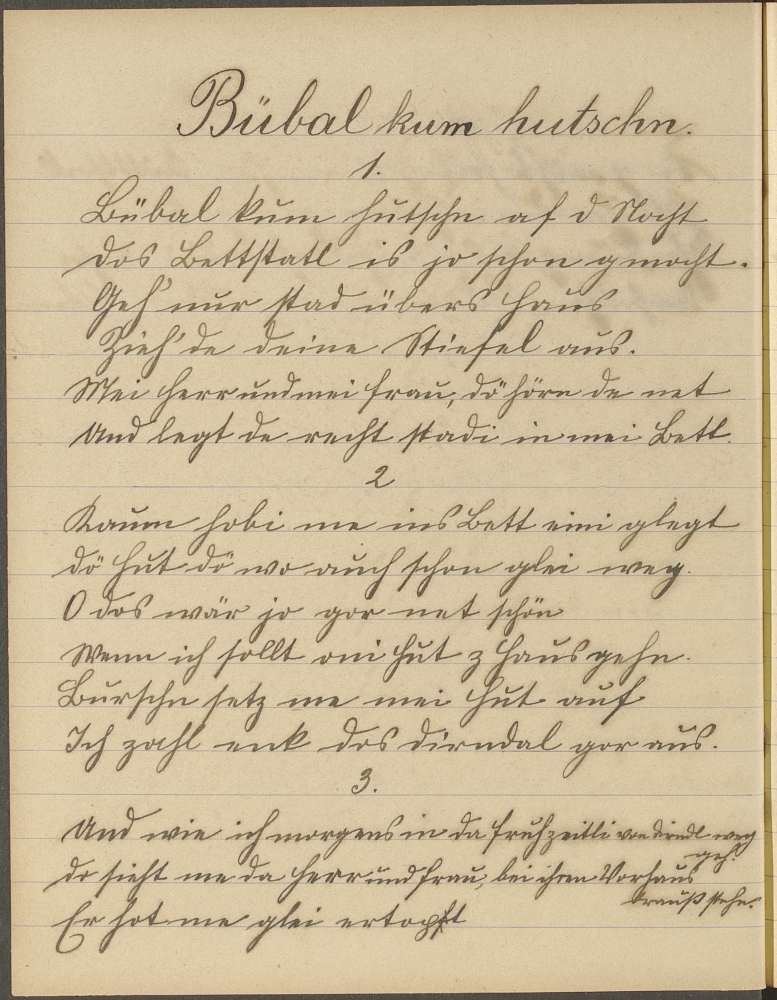 Bübal kum hutschn.
1.
Bübal kum hutschn af d Nocht
dos Bettstatl is jo schon gmocht.
Geh' nur stad übers Haus
Zieh' de deine Stiefel aus.
Mei Herr und mei Frau, dö hörn de net
Und legt de recht stadi in mei Bett.
2
Kaum hobi me ins Bett eini glegt
dö Hut dö wo auch schon glei weg.
O dos wär jo gor net schön
Wenn ich sollt oni Hut z Haus gehn.
Burschn setz me mei Hut auf
Ich zohl enk dos Dirndal gor aus.
3.
Und wie ich morgens in da Fruhzeitli von Dirndl weg
geh'
do sieht me da Herr und Frau, bei ihren Vorhaus
drauß stehn.
Er hot me glei ertopft